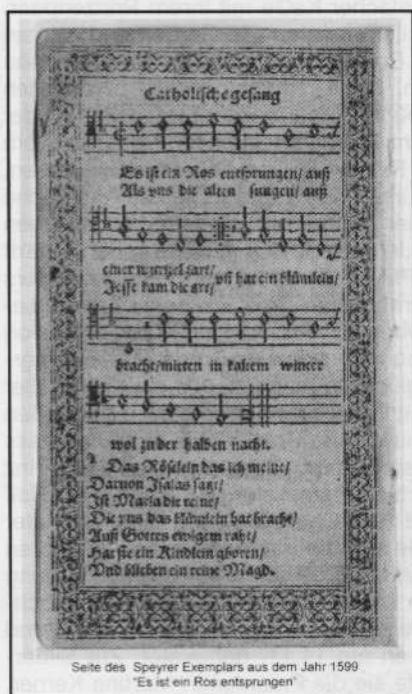 Catholische gesang
Es ist ein Ros entsprungen/ auß
Als vns die alten sungen/ auß
einer wurtzel zart/ vñ hat ein blümlein/
Jesse kam die art/
bracht/ mitten in kaltem winter
wol zu der halben nacht.
2. Das Röselein das ich meine/
Daruon Isaias sagt/
Ist Maria die reine/
Die vns das blümlein hat bracht/
Auß Gottes ewigem raht/
Hat sie ein Kindlein gboren/
Vnd blieben ein reine Magd.
Seite des Speyrer Exemplars aus dem Jahr 1599
"Es ist ein Ros entsprungen"